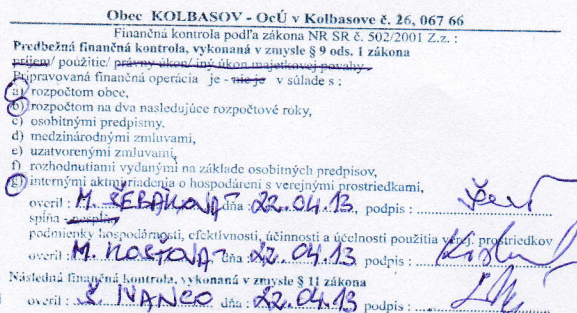 Obec KOLBASOV - OcÚ v Kolbasove č. 26, 067 66
Finančná kontrola podľa zákona NR SR č. 502/2001 Z.z. :
Predbežná finančná kontrola, vykonaná v zmysle § 9 ods. 1 zákona
príjem/ použitie/ právny úkon/ iný úkon majetkovej povahy
Pripravovaná finančná operácia je - nie je v súlade s :
a) rozpočtom obce,
b) rozpočtom na dva nasledujúce rozpočtové roky,
c) osobitnými predpismy,
d) medzinárodnými zmluvami,
e) uzatvorenými zmluvami,
f) rozhodnutiami vydanými na základe osobitných predpisov,
g) internými aktmi riadenia o hospodárení s verejnými prostriedkami,
overil : M. ŠEBÁKOVÁ dňa : 22.04.13, podpis :
spĺňa - nespĺňa
podmienky hospodárnosti, efektívnosti, účinnosti a účelnosti použitia verej. prostriedkov
overil : M. KOSŤOVÁ dňa : 22.04.13 podpis :
Následná finančná kontrola, vykonaná v zmysle § 11 zákona
overil : Š. IVANCO dňa : 22.04.13 podpis :